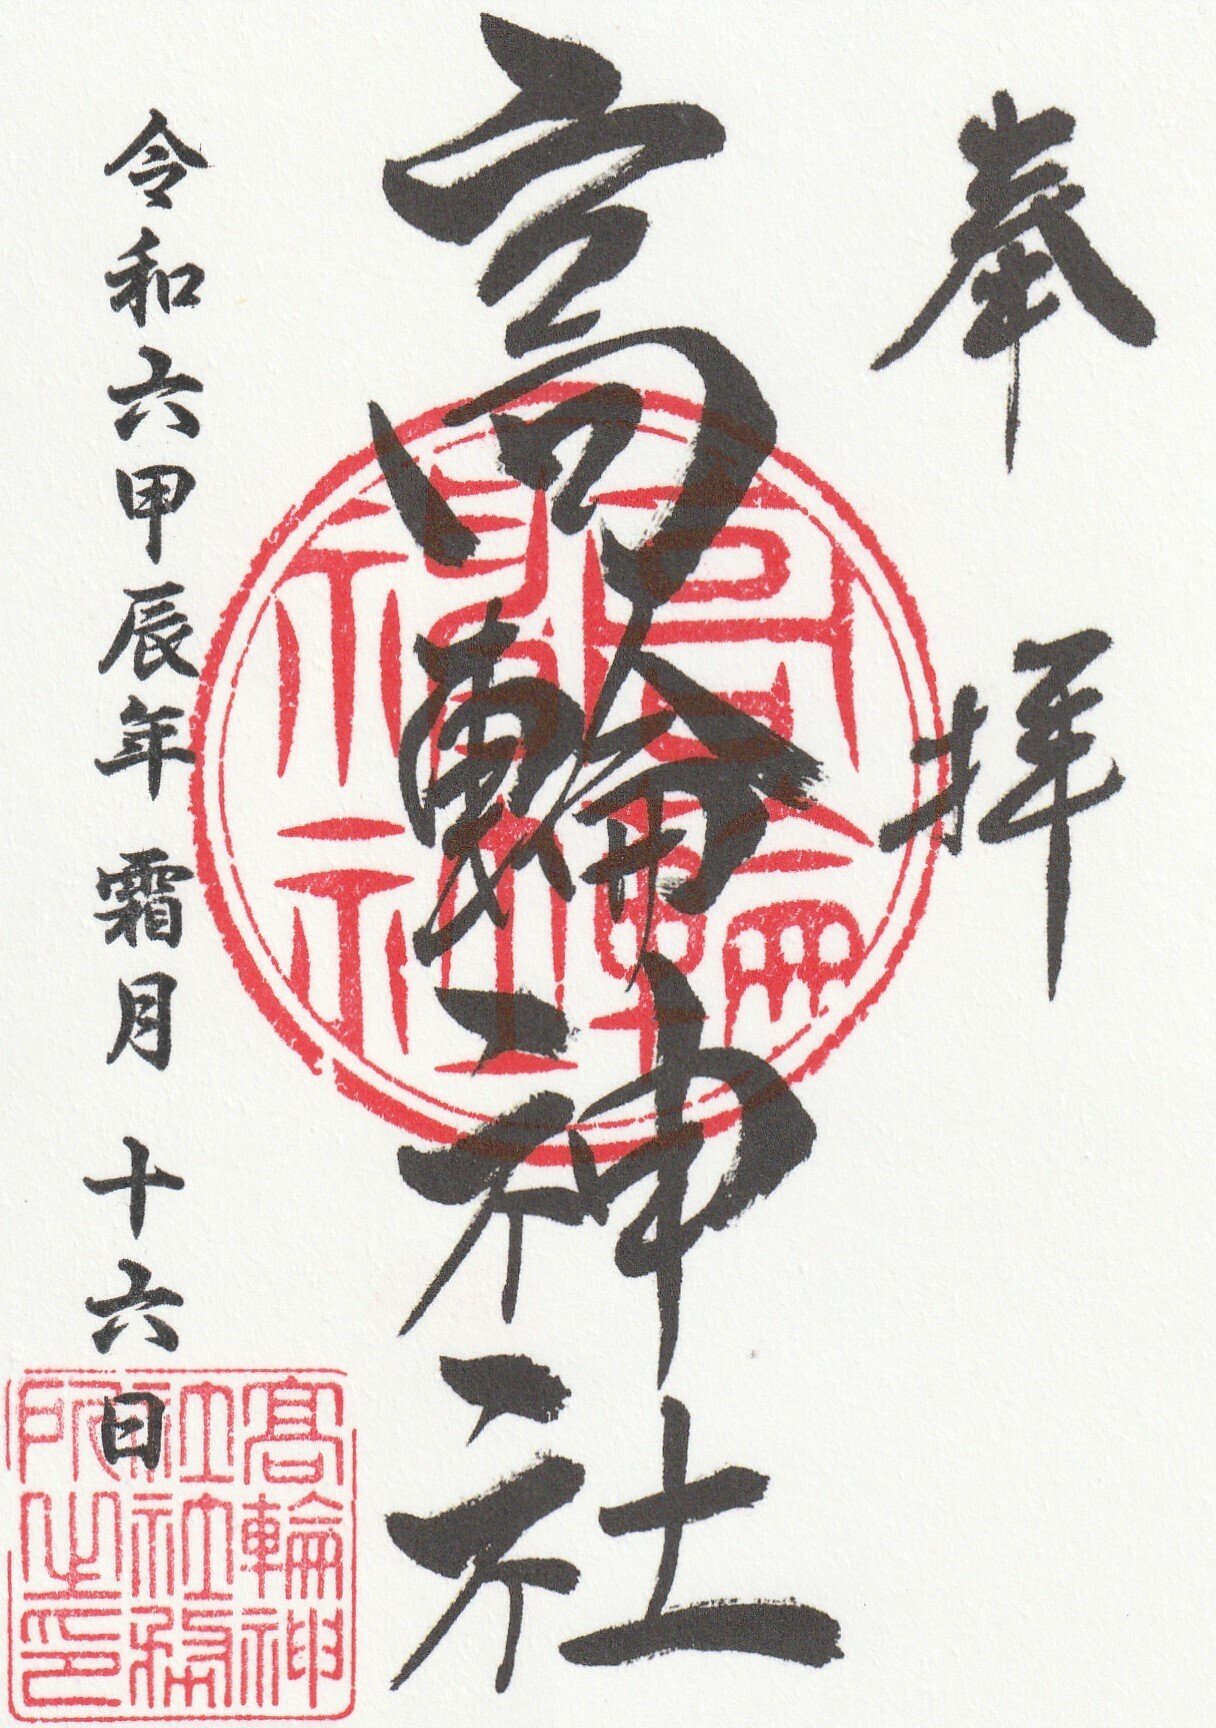 奉拝
高輪神社
令和六甲辰年 霜月 十六日
高輪神社
髙輪神社社務所之印